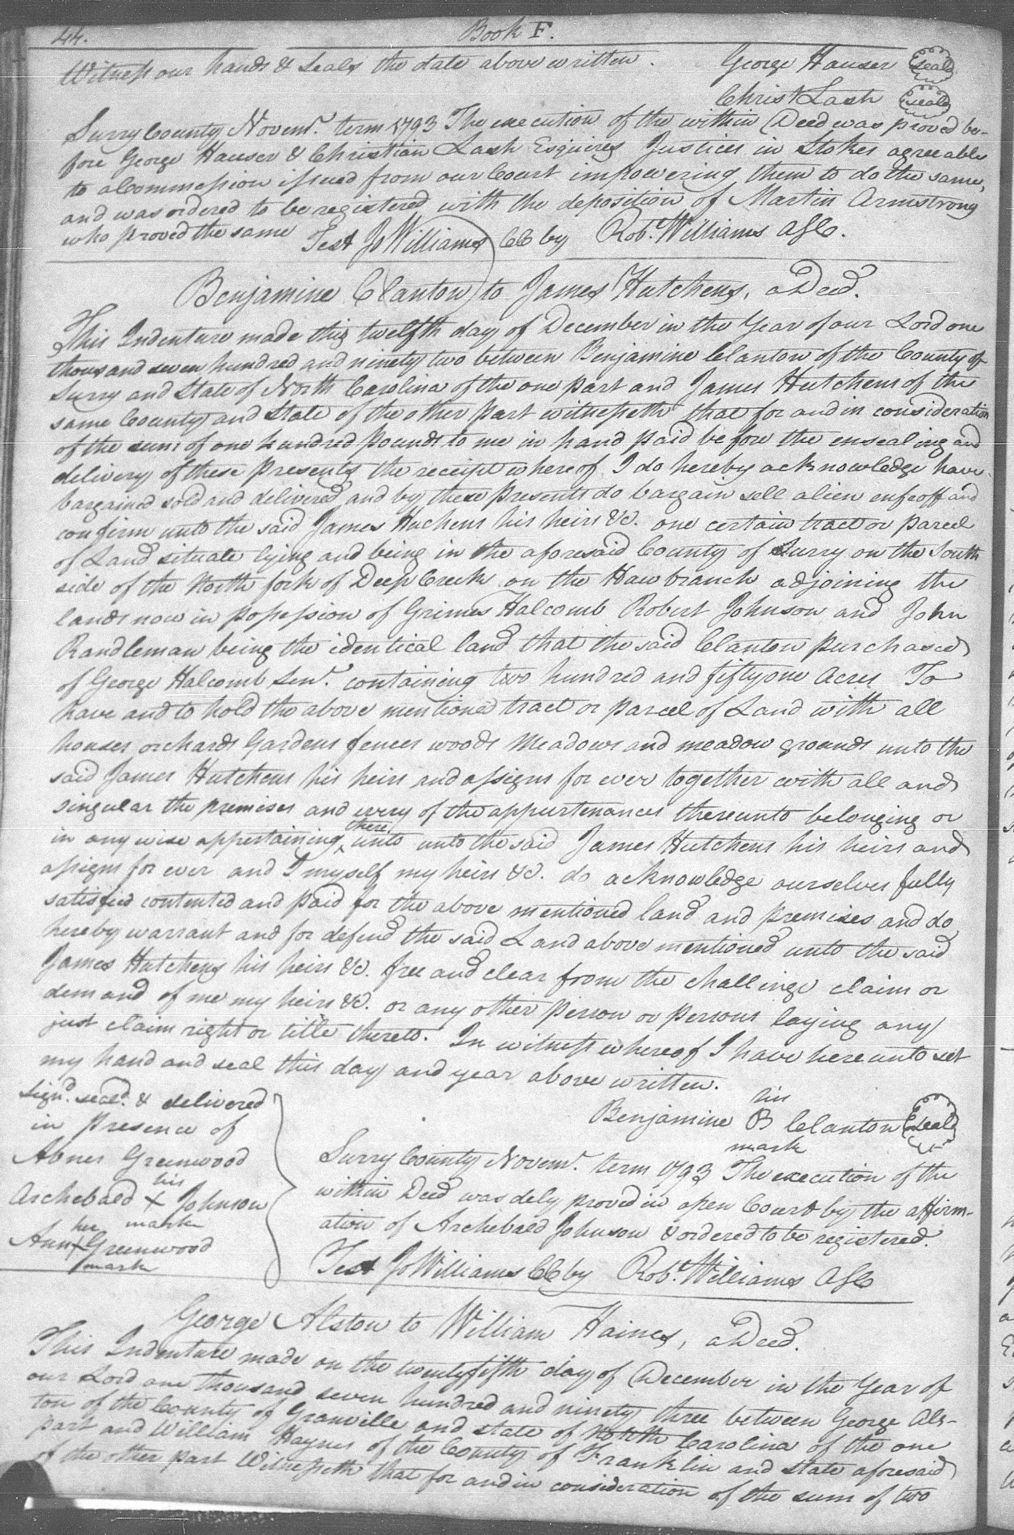 44. Book F.
Witness our hands & Seals the date above written. George Hauser (seal)
Christ Lash (seal)
Surry County Novemr. term 1793 The execution of the within Deed was proved be-
fore George Hauser & Christian Lash Esquires Justices in Stokes agreeable
to a Commission issued from our Court impowering them to do the same,
and was ordered to be registered with the deposition of Martin Armstrong
who proved the same Test Jo Williams CC by Robt. Williams ASC.
Benjamine Clanton to James Hutchens, a Deed.
This Indenture made this twelfth day of December in the Year of our Lord one
thousand seven hundred and ninety two between Benjamine Clanton of the County of
Surry and State of North Carolina of the one part and James Hutchens of the
same County and State of the other part witnesseth that for and in consideration
of the sum of one hundred pounds to me in hand paid before the ensealing and
delivery of these presents the receipt whereof I do hereby acknowledge have
bargained sold and delivered and by these presents do bargain sell alien enfeoff and
confirm unto the said James Huchens his heirs &c. one certain tract or parcel
of Land situate lying and being in the aforesaid County of Surry on the South
side of the North fork of Deep Creek on the Hawbranch adjoining the
lands now in possession of Grimes Halcomb Robert Johnson and John
Randleman being the identical land that the said Clanton purchased
of George Halcomb Senr. containing two hundred and fifty one Acres To
have and to hold the above mentioned tract or parcel of Land with all
houses orchards Gardens fences woods Meadows and meadow grounds unto the
said James Hutchens his heirs and assigns for ever together with all and
singular the premises and every of the appurtenances thereunto belonging or
in any wise appertaining there unto unto the said James Hutchens his heirs and
assigns for ever and I myself my heirs &c. do acknowledge ourselves fully
satisfied contented and paid for the above mentioned land and premises and do
hereby warrant and for defend the said Land above mentioned unto the said
James Hutchens his heirs &c. free and clear from the challinge claim or
demand of me my heirs &c. or any other person or persons laying any
just claim right or title thereto. In witness whereof I have hereunto set
my hand and seal this day and year above written.
Signd. seald. & delivered
in presence of
Abner Greenwood
Archebald his X mark Johnson
Ann her X mark Greenwood
Benjamine his B mark Clanton (seal)
Surry County Novemr. term 1793 The execution of the
within Deed was dely proved in open Court by the affirm-
ation of Archebald Johnson & ordered to be registered.
Test Jo Williams CC by Robt. Williams ASC
George Alston to William Haines, a Deed.
This Indenture made on the twentyfifth day of December in the Year of
our Lord one thousand seven hundred and ninety three between George Als-
ton of the County of Granville and state of North Carolina of the one
part and William Haynes of the County of Franklin and state aforesaid
of the other part Witnesseth that for and in consideration of the sum of two